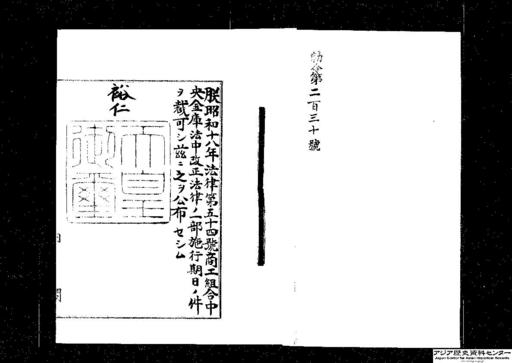 勅令第二百三十號
朕昭和十八年法律第五十四號商工組合中
央金庫法中改正法律ノ一部施行期日ノ件
ヲ裁可シ茲ニ之ヲ公布セシム
裕仁
天皇
御璽
内
閣
アジア歴史資料センター
Japan Center for Asian Historical Records